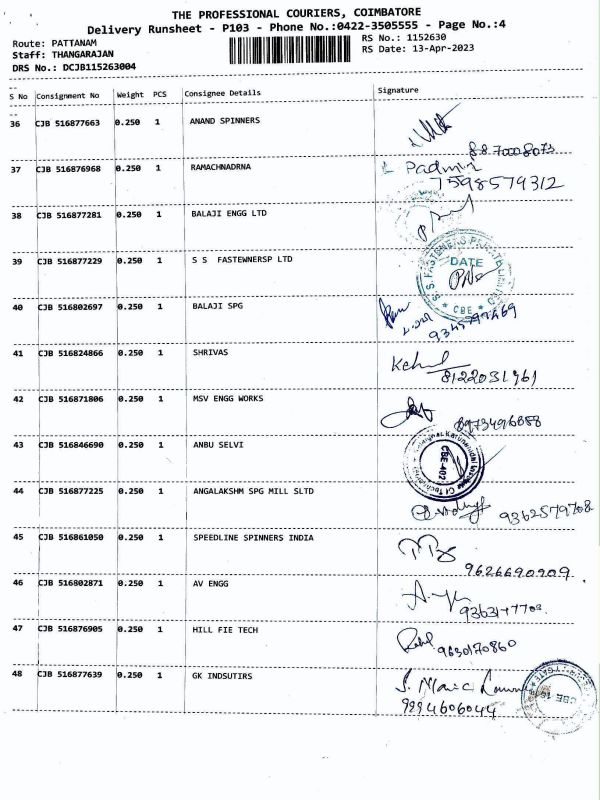 THE PROFESSIONAL COURIERS, COIMBATORE
Delivery Runsheet - P103 - Phone No.:0422-3505555 - Page No.:4
Route: PATTANAM RS No.: 1152630
Staff: THANGARAJAN RS Date: 13-Apr-2023
DRS No.: DCJB115263004
S No Consignment No Weight PCS Consignee Details Signature
36 CJB 516877663 0.250 1 ANAND SPINNERS
37 CJB 516876968 0.250 1 RAMACHNADRNA Padmin
7598579312
38 CJB 516877281 0.250 1 BALAJI ENGG LTD
39 CJB 516877229 0.250 1 S S FASTEWNERSP LTD DATE
CBE
40 CJB 516802697 0.250 1 BALAJI SPG
41 CJB 516824866 0.250 1 SHRIVAS
8122031961
42 CJB 516871806 0.250 1 MSV ENGG WORKS
8973496888
43 CJB 516846690 0.250 1 ANBU SELVI CBE-402
44 CJB 516877225 0.250 1 ANGALAKSHM SPG MILL SLTD
9362579708
45 CJB 516861050 0.250 1 SPEEDLINE SPINNERS INDIA
9626690909
46 CJB 516802871 0.250 1 AV ENGG
47 CJB 516876905 0.250 1 HILL FIE TECH
9630170860
48 CJB 516877639 0.250 1 GK INDSUTIRS
9994606044